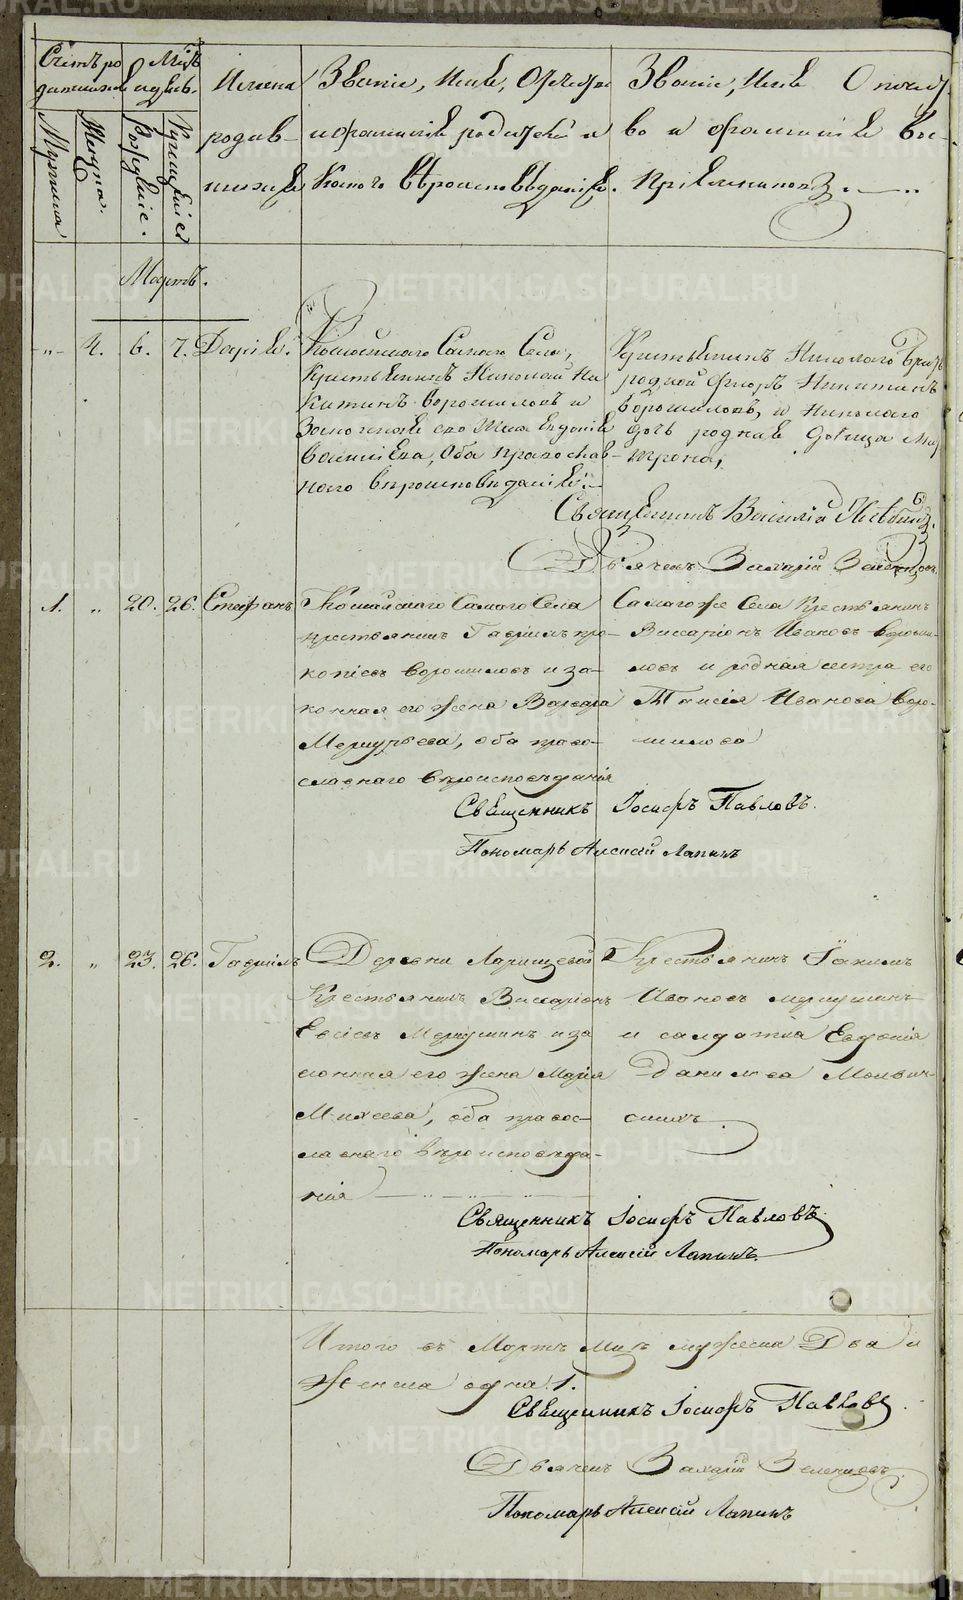 Счетъ ро
дившихся
Мужеска
Женска.
Мѣсяцъ
и день.
Рожденіе.
Крещеніе
Имена
родив-
шихся
Званіе, Имя, Отчество
и фамилія родителей и
какого вѣроисповѣданія.
Званіе, Имя Отчест
во и фамилія вос-
пріемниковъ.
Мартъ.
4. 6. 7. Дарія.
Кошайскаго Самаго Села,
Крестьянинъ Николай Ни
китинъ Ворошиловъ и
Законная его Жена Евдокія
Васильева, Оба православ-
наго вѣроисповѣданія
Крестьянинъ Николаго Братъ
родной Фиоръ Никитинъ
Ворошиловъ, и Николаго
дочь родная девица Мат-
трона,
Священникъ Василій
Дьячекъ Захарій Зеленцовъ
1. " 20. 26. Стефанъ
Кошайскаго Самаго Села
крестьянинъ Гавріилъ про-
копіевъ Ворошиловъ и за-
конная его жена Варвара
Меркурьева, оба право-
славнаго вѣроисповѣданія
Самагоже Села Крестьянинъ
Виссаріонъ Ивановъ Вороши-
ловъ и родная сестра его
Таисія Иванова Воро-
шилова
Священникъ Іосифъ Павловъ.
Пономарь Алексѣй Лапинъ
2. " 23. 26. Гавріилъ
Деревни Ларищевой
Крестьянинъ Виссаріонъ
Евсіевъ Меркушинъ и за
конная его жена Марія
Михеева, оба правос-
лавнаго вѣроисповѣда-
нія
Крестьянинъ Іакимъ
Ивановъ меркушинъ
и салдатка Евдокія
Данилова
Священникъ Іосифъ Павловъ
Пономарь Алексѣй Лапинъ.
Итого въ Мартѣ мцѣ мужеска Два и
Женска одна 1.
Священникъ Іосифъ Павловъ
Дьячекъ Захарій Зеленцовъ
Пономарь Алексѣй Лапинъ
METRIKI.GASO-URAL.RU